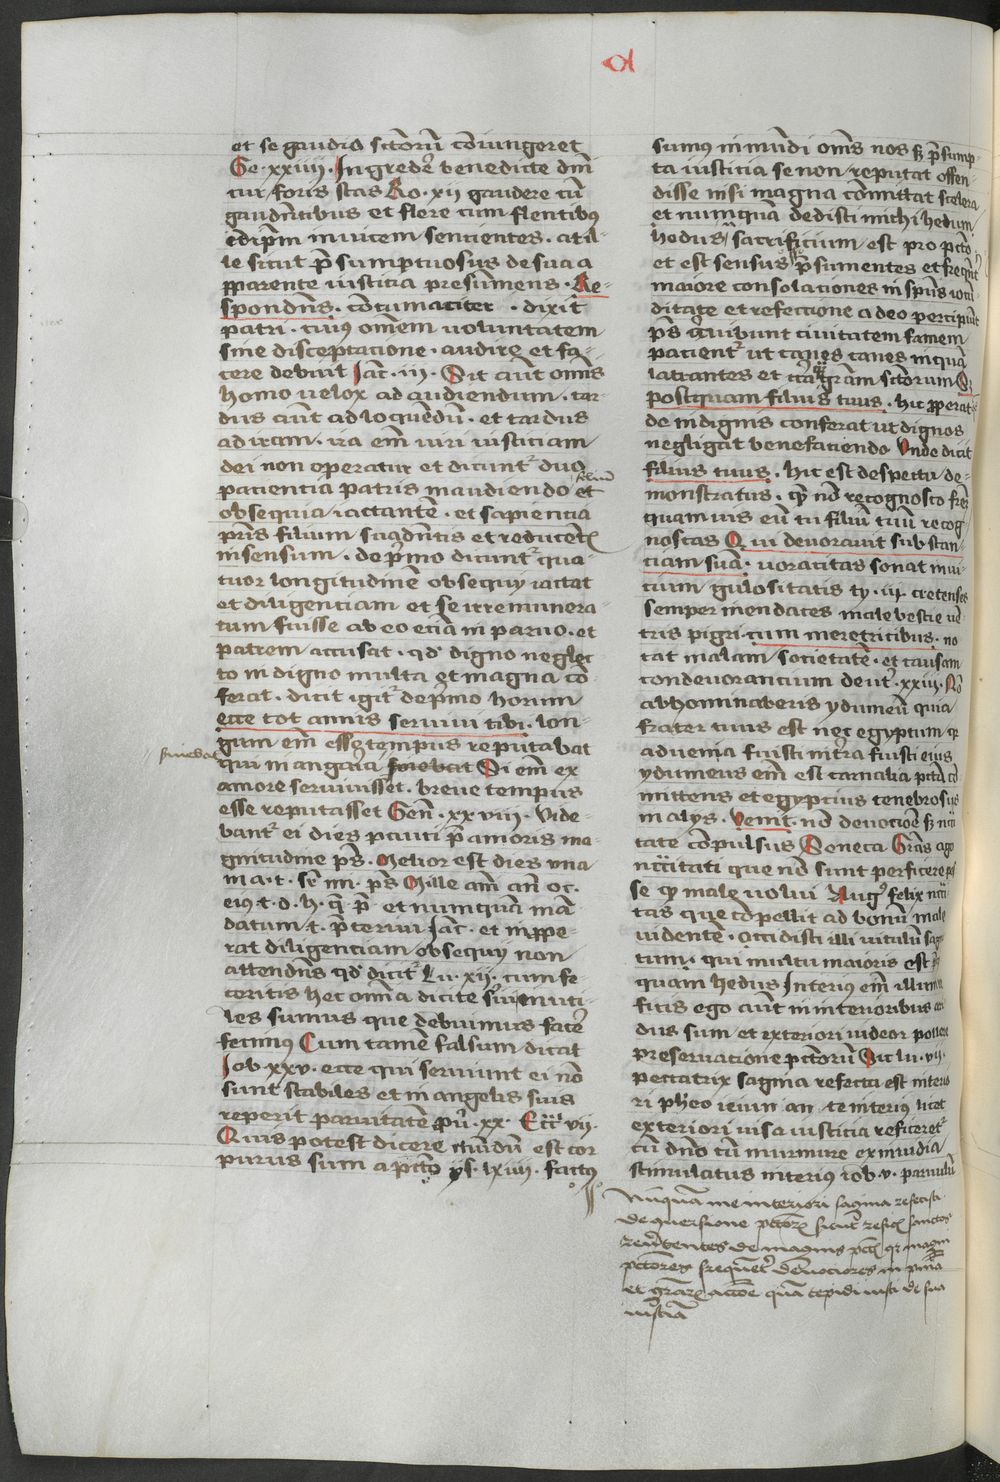 et se gaudio sctorū cōiungeret
Ge · xxiiii · Ingredere benedicte dni
cur foris stas Ro · xii gaudere cū
gaudētibus et flere cum flentibus
idipm inuicem sencientes ·
le sicut psumptuosus de sua a
pparente iusticia presumens · Re-
spondens · cōtumaciter · dixit
patri · cuius omēm uoluntatem
sine disceptacione · audire et fa-
cere debuit Jac · iii · Sit aut omis
homo uelox ad audiendum · tar-
dus aut ad loquēdū · et tardus
ad iram · ira em uiri iusticiam
dei non operatur et dicunt duo
paciencia patris in audiendo filium et
obsequia iactante · et sapiencia
pris filium suadentis et reducete
in sensum · de pmo dicunt qua-
tuor longitudinē obsequij iactat
et diligentiam et se irremunera-
tum fuisse ab eo eciā in paruo · et
patrem accusat · qd digno neglec-
to indigno multa et magna cō-
ferat · dicit igit de pmo horum
ecce tot annis seruiui tibi · lon-
gum em esse tempus reputabat
qui in angaria Si em ex
amore seruiuisset · breue tempus
esse reputasset Gen · xxviiii · Vide-
bant ei dies pauci p amoris ma-
gnitudine ps · Melior est dies una
in a · t · sr mi · ps Mille am an oc ·
eius t · d · h · q p et numquā mā-
datum t · pteriui Jac · et inppe-
rat diligentiam obsequij non
attendens qd dicit Lu · xii · cum fe-
ceritis hec omia dicite sui inuti-
les sumus que debuimus facere
fecimus Cum tamē falsum dicat
Job · xxv · ecce qui seruiunt ei nō
sunt stabiles et in angelis suis
reperit prauitatē pu · xx · Ecc vii ·
Quis potest dicere mūdū est cor
purus sum a pcto ys · lxiiii · factus
sumus inmūdi omēs nos s psump-
ta iusticia se non reputat offen-
disse nisi magna cōmittat scelera
et numquā dedisti michi hedum
hedus sacrificium est pro pcto
et est sensus psumentes et frequēt
maiore consolaciones in spūs iocū-
ditate et refectione a deo percipiūt
ps circuibunt ciuitatem famem
pacient ut canes canes inquā
latrantes et gram sctorum S
postquam filius tuus · hic pperat
de indignis conferat ut dignos
negligat benefaciendo Unde dicit
filius tuus · hic est despectu de-
monstratus · q nō recognosco frem
quamuis eū tu filiū tuū recog-
noscas Qui deuorauit substan-
ciam suā · uoracitas sonat in ui-
cium gulositatis ty · iii cretenses
semper mendaces male bestie uē-
tris pigri · cum meretricibus · no-
tat malam societatē · et causam
condeuorancium deut · xxiii · Nō
abhominaberis ydumeū quia
frater tuus est nec egyptum q
aduena fuisti in tra fuisti eius
ydumeus em est carnalia pcta cō-
mittens et egyptius tenebrosus
in alijs · Venit · nō deuocioē s ncēi-
tate cōpulsus Seneca Gras ago
ncēitati que nō sunt perficere pos-
se q male uolui Aug felix ncēi-
tas que cōpellit ad bonū male
uidentē · occidisti illi uitulū sagi-
tum · qui multū maioris est p
quam hedus Interius em illum
ficis ego aut in interioribus ari-
dus sum et exteriori uideor pollere
preseruacione pctorū Sic lu · vii ·
peccatrix sagina refecta est interio-
ri pheo ieiun an te interius licet
exteriori uisa iusticia reficeret
cū dno cū murmure ex inuidia
stimulatus interius iob · v · paruulū
Nūquā me interiori sagina refecisti
de quersione pctorz sicut reficis sanctos
reuertentes de magnis pctis qr magni
pctores frequēter deuociores in pnīa
et graz accōe quā tepidi iusti de sua
iusticiā